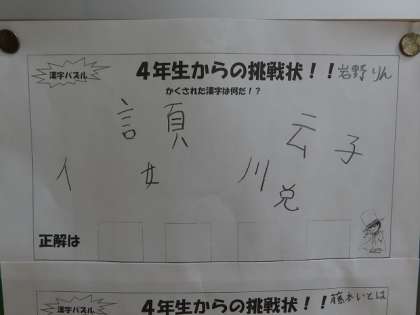 漢字パズル
4年生からの挑戦状!!
岩野りん
かくされた漢字は何だ!?
言 頁 云 子
イ 女 川 兑
正解は
漢字パズル
4年生からの挑戦状!!
藤本いとは